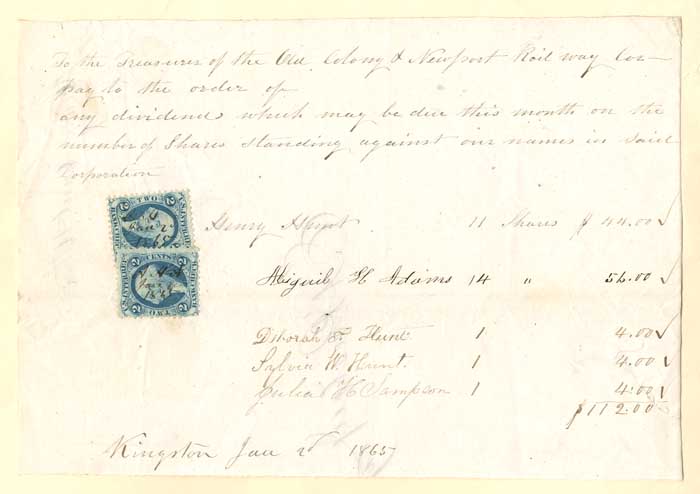 To the Treasurer of the Old Colony & Newport Rail way Cor-
pay to the order of
any dividends which may be due this month on the
number of Shares standing against our names in said
Corporation
Henry Hunt 11 Shares $ 44.00 ✓
Abigail H Adams 14 " 56.00 ✓
Deborah S. Hunt 1 4.00 ✓
Sylvia W. Hunt. 1 4.00 ✓
Julia H Sampson 1 4.00 ✓
$112.00
Kingston Jan 2d 1865
2 TWO 2
Jan 2
1865
2 CENTS 2
Jan 2
1865
2 TWO 2